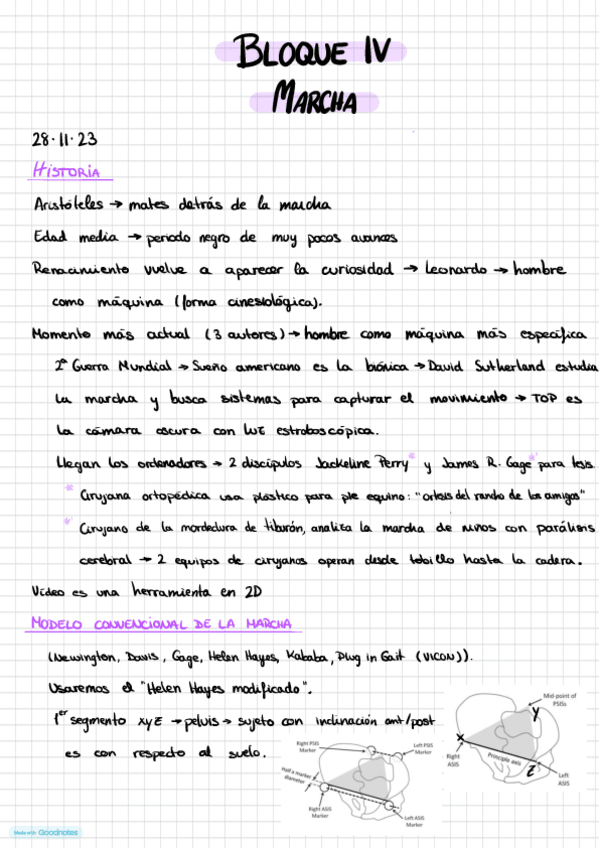 BLOQUE IV
MARCHA
28·11·23
HISTORIA
Aristóteles → mates detrás de la marcha
Edad media → periodo negro de muy pocos avances
Renacimiento vuelve a aparecer la curiosidad → Leonardo → hombre
como máquina (forma cinesiológica).
Momento más actual (3 autores) → hombre como máquina más específica
2ª Guerra Mundial → Sueño americano es la biónica → David Sutherland estudia
la marcha y busca sistemas para capturar el movimiento → TOP es
la cámara oscura con luz estroboscópica.
Llegan los ordenadores → 2 discípulos Jackeline Perry* y James R. Gage*' para tesis
* Cirujana ortopédica usa plástico para pie equino: "ortesis del rancho de los amigos"
*' Cirujano de la mordedura de tiburón, analiza la marcha de niños con parálisis
cerebral → 2 equipos de cirujanos operan desde tobillo hasta la cadera.
Vídeo es una herramienta en 2D
MODELO CONVENCIONAL DE LA MARCHA
(Newington, Davis, Gage, Helen Hayes, Kababa, Plug in Gait (VICON)).
Usaremos el "Helen Hayes modificado".
1er segmento xyz → pelvis → sujeto con inclinación ant/post
es con respecto al suelo.
Right PSIS Marker
Left PSIS Marker
Half a marker diameter
Right ASIS Marker
Left ASIS Marker
Mid-point of PSISs
Y
X
Right ASIS
Principle axis
Z
Left ASIS
Made with Goodnotes